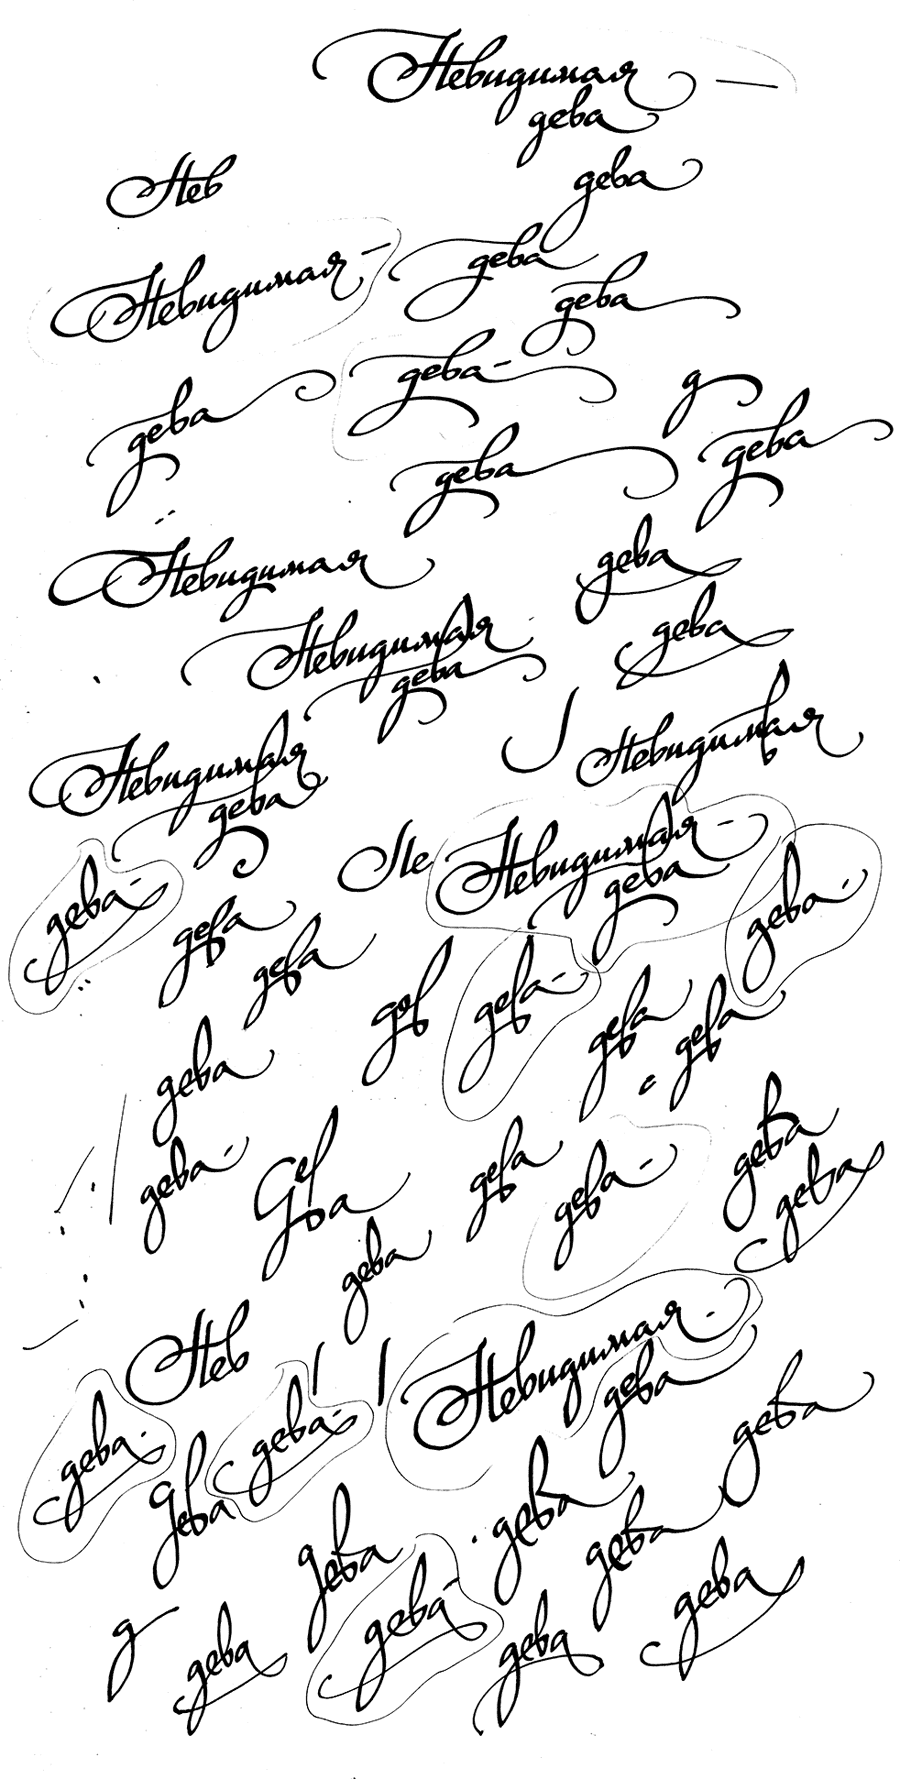 Невидимая
дева
Нев
дева
Невидимая
дева
дева
дева
дева
д
дева
дева
дева
Невидимая
дева
Невидимая
дева
дева
Невидимая
Невидимая
дева
Не
Невидимая
дева
дева
дева
дева
дева
дев
дева
дева
дева
дева
дева
дева
дева
дева
дева
дева
дева
дева
Невидимая
дева
Нев
дева
дева
дева
дева
дева
дева
дева
д
дева
дева
дева
дева